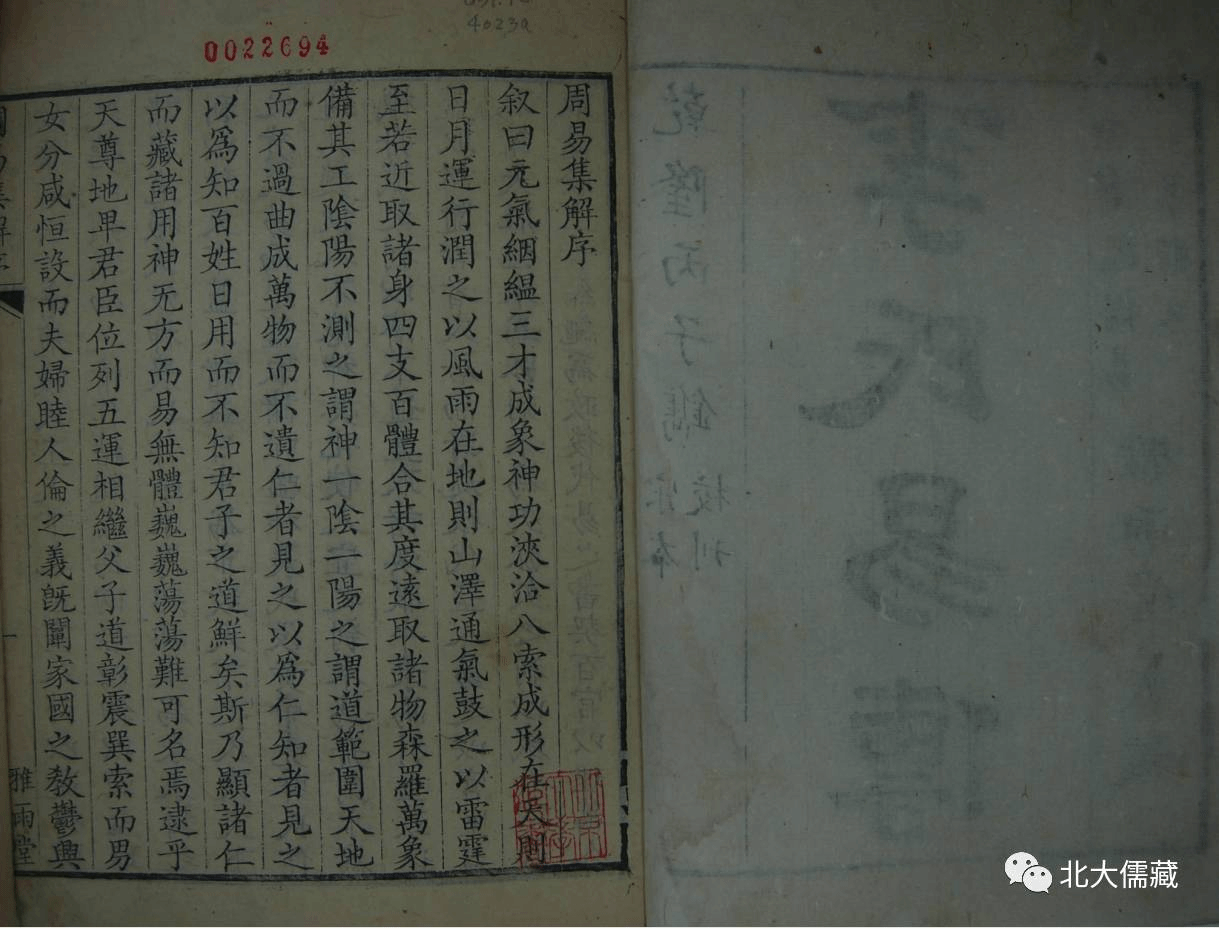 0022694
4023a
周易集解序
叙曰元氣絪緼三才成象神功浹洽八索成形在天則
日月運行潤之以風雨在地則山澤通氣鼓之以雷霆
至若近取諸身四支百體合其度遠取諸物森羅萬象
備其工陰陽不測之謂神一陰一陽之謂道範圍天地
而不過曲成萬物而不遺仁者見之以爲仁知者見之
以爲知百姓日用而不知君子之道鮮矣斯乃顯諸仁
而藏諸用神无方而易無體巍巍蕩蕩難可名焉逮乎
天尊地卑君臣位列五運相繼父子道彰震巽索而男
女分咸恒設而夫婦睦人倫之義旣闡家國之敎鬱興
一
雅雨堂
乾隆丙子鐫
李氏易傳
北大儒藏